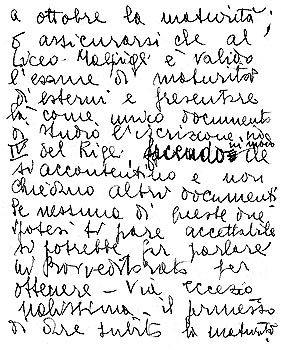 a ottobre la maturità,
o assicurarsi che al
Liceo Malpighi è valido
l'esame di maturità
d'esterni e presentare
là come unico documento
di studio l'iscrizione
IV del Righi facendo in modo che
si accontentino e non
chiedano altri documenti
Se nessuna di queste due
ipotesi ti pare accettabile
si potrebbe far parlare
in Provveditorato per
ottenere – Via eccezio
nalissima – il permesso
di dare subito la maturità